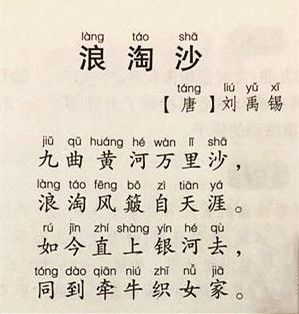 làng táo shā
浪淘沙
táng liú yǔ xī
【唐】刘禹锡
jiǔ qū huáng hé wàn lǐ shā
九曲黄河万里沙，
làng táo fēng bǒ zì tiān yá
浪淘风簸自天涯。
rú jīn zhí shàng yín hé qù
如今直上银河去，
tóng dào qiān niú zhī nǚ jiā
同到牵牛织女家。